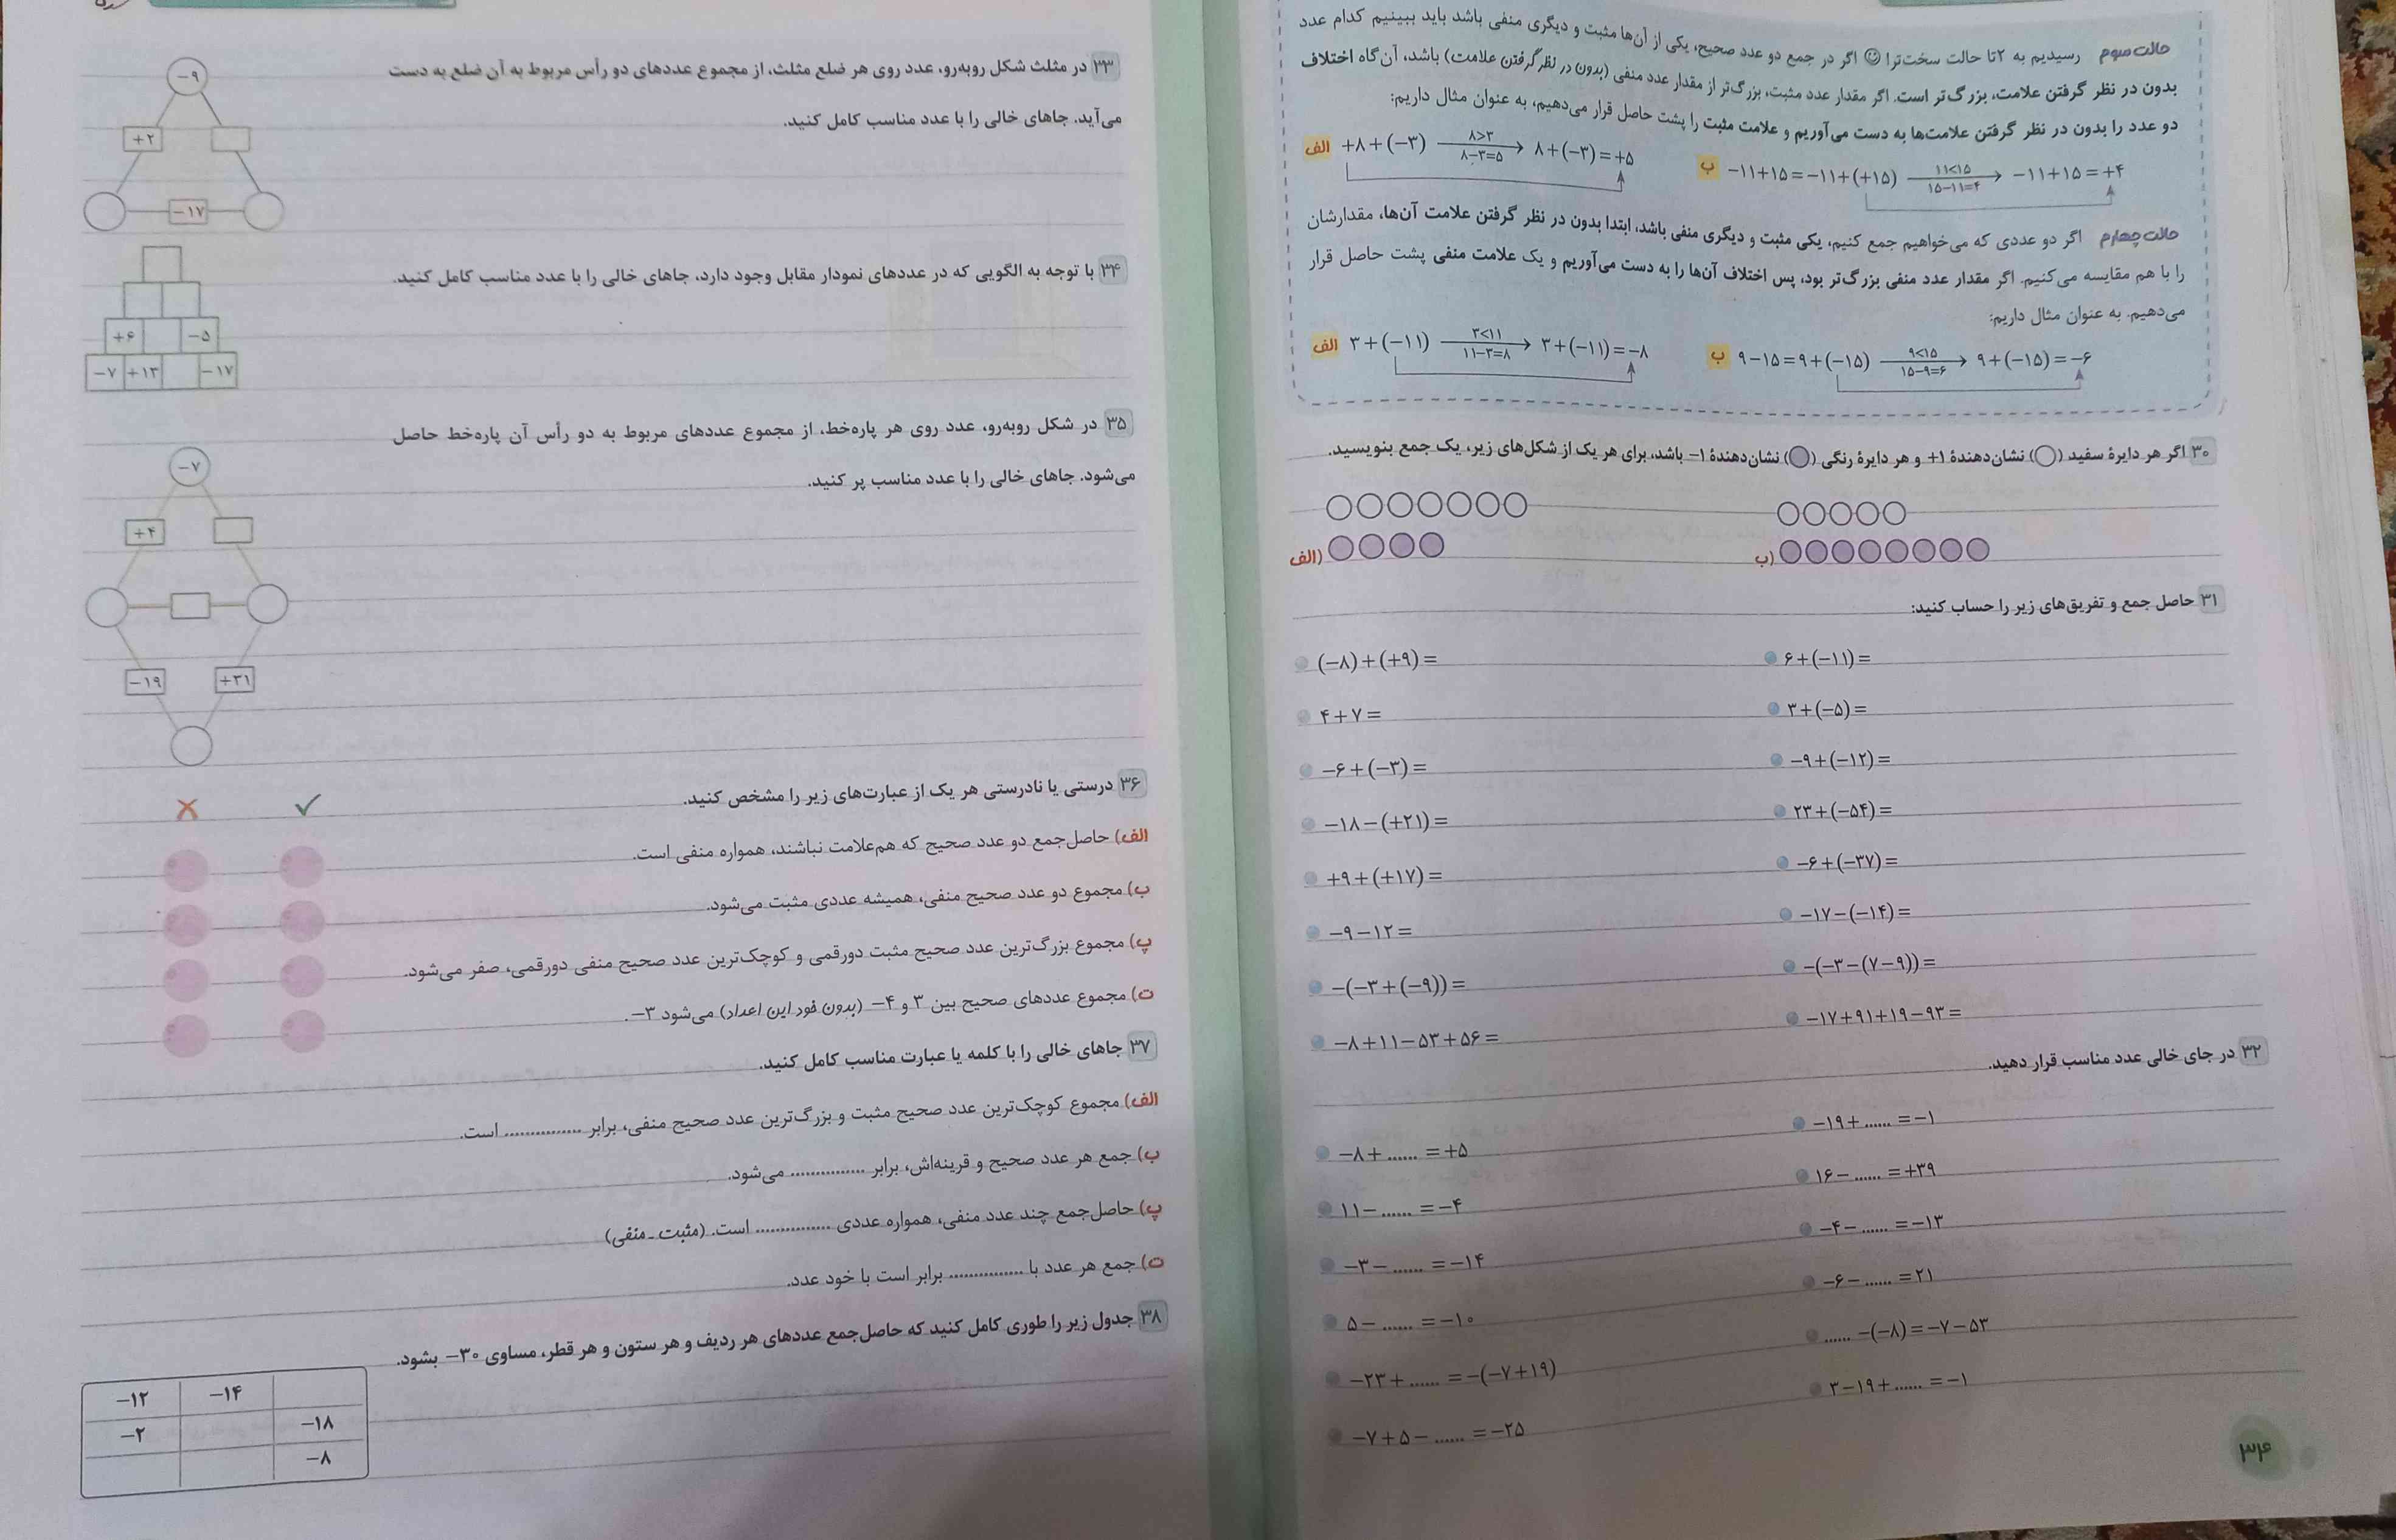 حالت سوم رسیدیم به ۲تا حالت سخت‌تر! اگر در جمع دو عدد صحیح، یکی از آن‌ها مثبت و دیگری منفی باشد باید ببینیم کدام عدد
بدون در نظر گرفتن علامت، بزرگ‌تر است. اگر مقدار عدد مثبت، بزرگ‌تر از مقدار عدد منفی (بدون در نظر گرفتن علامت) باشد، آن‌گاه اختلاف
دو عدد را بدون در نظر گرفتن علامت‌ها به دست می‌آوریم و علامت مثبت را پشت حاصل قرار می‌دهیم، به عنوان مثال داریم:
الف +۸+(−۳) ۸>۳ ۸−۳=۵ ۸+(−۳)=+۵
ب −۱۱+۱۵=−۱۱+(+۱۵) ۱۱<۱۵ ۱۵−۱۱=۴ −۱۱+۱۵=+۴
حالت چهارم اگر دو عددی که می‌خواهیم جمع کنیم، یکی مثبت و دیگری منفی باشد، ابتدا بدون در نظر گرفتن علامت آن‌ها، مقدارشان
را با هم مقایسه می‌کنیم. اگر مقدار عدد منفی بزرگ‌تر بود، پس اختلاف آن‌ها را به دست می‌آوریم و یک علامت منفی پشت حاصل قرار
می‌دهیم. به عنوان مثال داریم:
الف ۳+(−۱۱) ۳<۱۱ ۱۱−۳=۸ ۳+(−۱۱)=−۸
ب ۹−۱۵=۹+(−۱۵) ۹<۱۵ ۱۵−۹=۶ ۹+(−۱۵)=−۶
۳۰ اگر هر دایرهٔ سفید (○) نشان‌دهندهٔ ۱+ و هر دایرهٔ رنگی (●) نشان‌دهندهٔ ۱− باشد، برای هر یک از شکل‌های زیر، یک جمع بنویسید.
الف)
ب)
۳۱ حاصل جمع و تفریق‌های زیر را حساب کنید:
(−۸)+(+۹)=
۶+(−۱۱)=
۴+۷=
۳+(−۵)=
−۶+(−۳)=
−۹+(−۱۲)=
−۱۸−(+۲۱)=
۲۳+(−۵۴)=
+۹+(+۱۷)=
−۶+(−۳۷)=
−۹−۱۲=
−۱۷−(−۱۴)=
−(−۳+(−۹))=
−(−۳−(۷−۹))=
−۸+۱۱−۵۳+۵۶=
−۱۷+۹۱+۱۹−۹۳=
۳۲ در جای خالی عدد مناسب قرار دهید.
−۸+ ...... =+۵
−۱۹+ ...... =−۱
۱۱− ...... =−۴
۱۶− ...... =+۳۹
−۳− ...... =−۱۴
−۴− ...... =−۱۳
۵− ...... =−۱۰
−۶− ...... =۲۱
−۲۳+ ...... =−(−۷+۱۹)
...... −(−۸)=−۷−۵۳
−۷+۵− ...... =−۲۵
۳−۱۹+ ...... =−۱
۳۴
۳۳ در مثلث شکل روبه‌رو، عدد روی هر ضلع مثلث، از مجموع عددهای دو رأس مربوط به آن ضلع به دست
می‌آید. جاهای خالی را با عدد مناسب کامل کنید.
−۹
+۲
−۱۷
۳۴ با توجه به الگویی که در عددهای نمودار مقابل وجود دارد، جاهای خالی را با عدد مناسب کامل کنید.
+۶ −۵
−۷ +۱۳ −۱۷
۳۵ در شکل روبه‌رو، عدد روی هر پاره‌خط، از مجموع عددهای مربوط به دو رأس آن پاره‌خط حاصل
می‌شود. جاهای خالی را با عدد مناسب پر کنید.
−۷
+۴
−۱۹ +۳۱
۳۶ درستی یا نادرستی هر یک از عبارت‌های زیر را مشخص کنید.
الف) حاصل‌جمع دو عدد صحیح که هم‌علامت نباشند، همواره منفی است.
ب) مجموع دو عدد صحیح منفی، همیشه عددی مثبت می‌شود.
پ) مجموع بزرگ‌ترین عدد صحیح مثبت دورقمی و کوچک‌ترین عدد صحیح منفی دورقمی، صفر می‌شود.
ت) مجموع عددهای صحیح بین ۳ و ۴− (بدون خود این اعداد) می‌شود ۳−.
۳۷ جاهای خالی را با کلمه یا عبارت مناسب کامل کنید.
الف) مجموع کوچک‌ترین عدد صحیح مثبت و بزرگ‌ترین عدد صحیح منفی، برابر ............... است.
ب) جمع هر عدد صحیح و قرینه‌اش، برابر ............... می‌شود.
پ) حاصل‌جمع چند عدد منفی، همواره عددی ............... است. (مثبت ـ منفی)
ت) جمع هر عدد با ............... برابر است با خود عدد.
۳۸ جدول زیر را طوری کامل کنید که حاصل‌جمع عددهای هر ردیف و هر ستون و هر قطر، مساوی ۳۰− بشود.
−۱۲ −۱۴
−۲ −۱۸
−۸